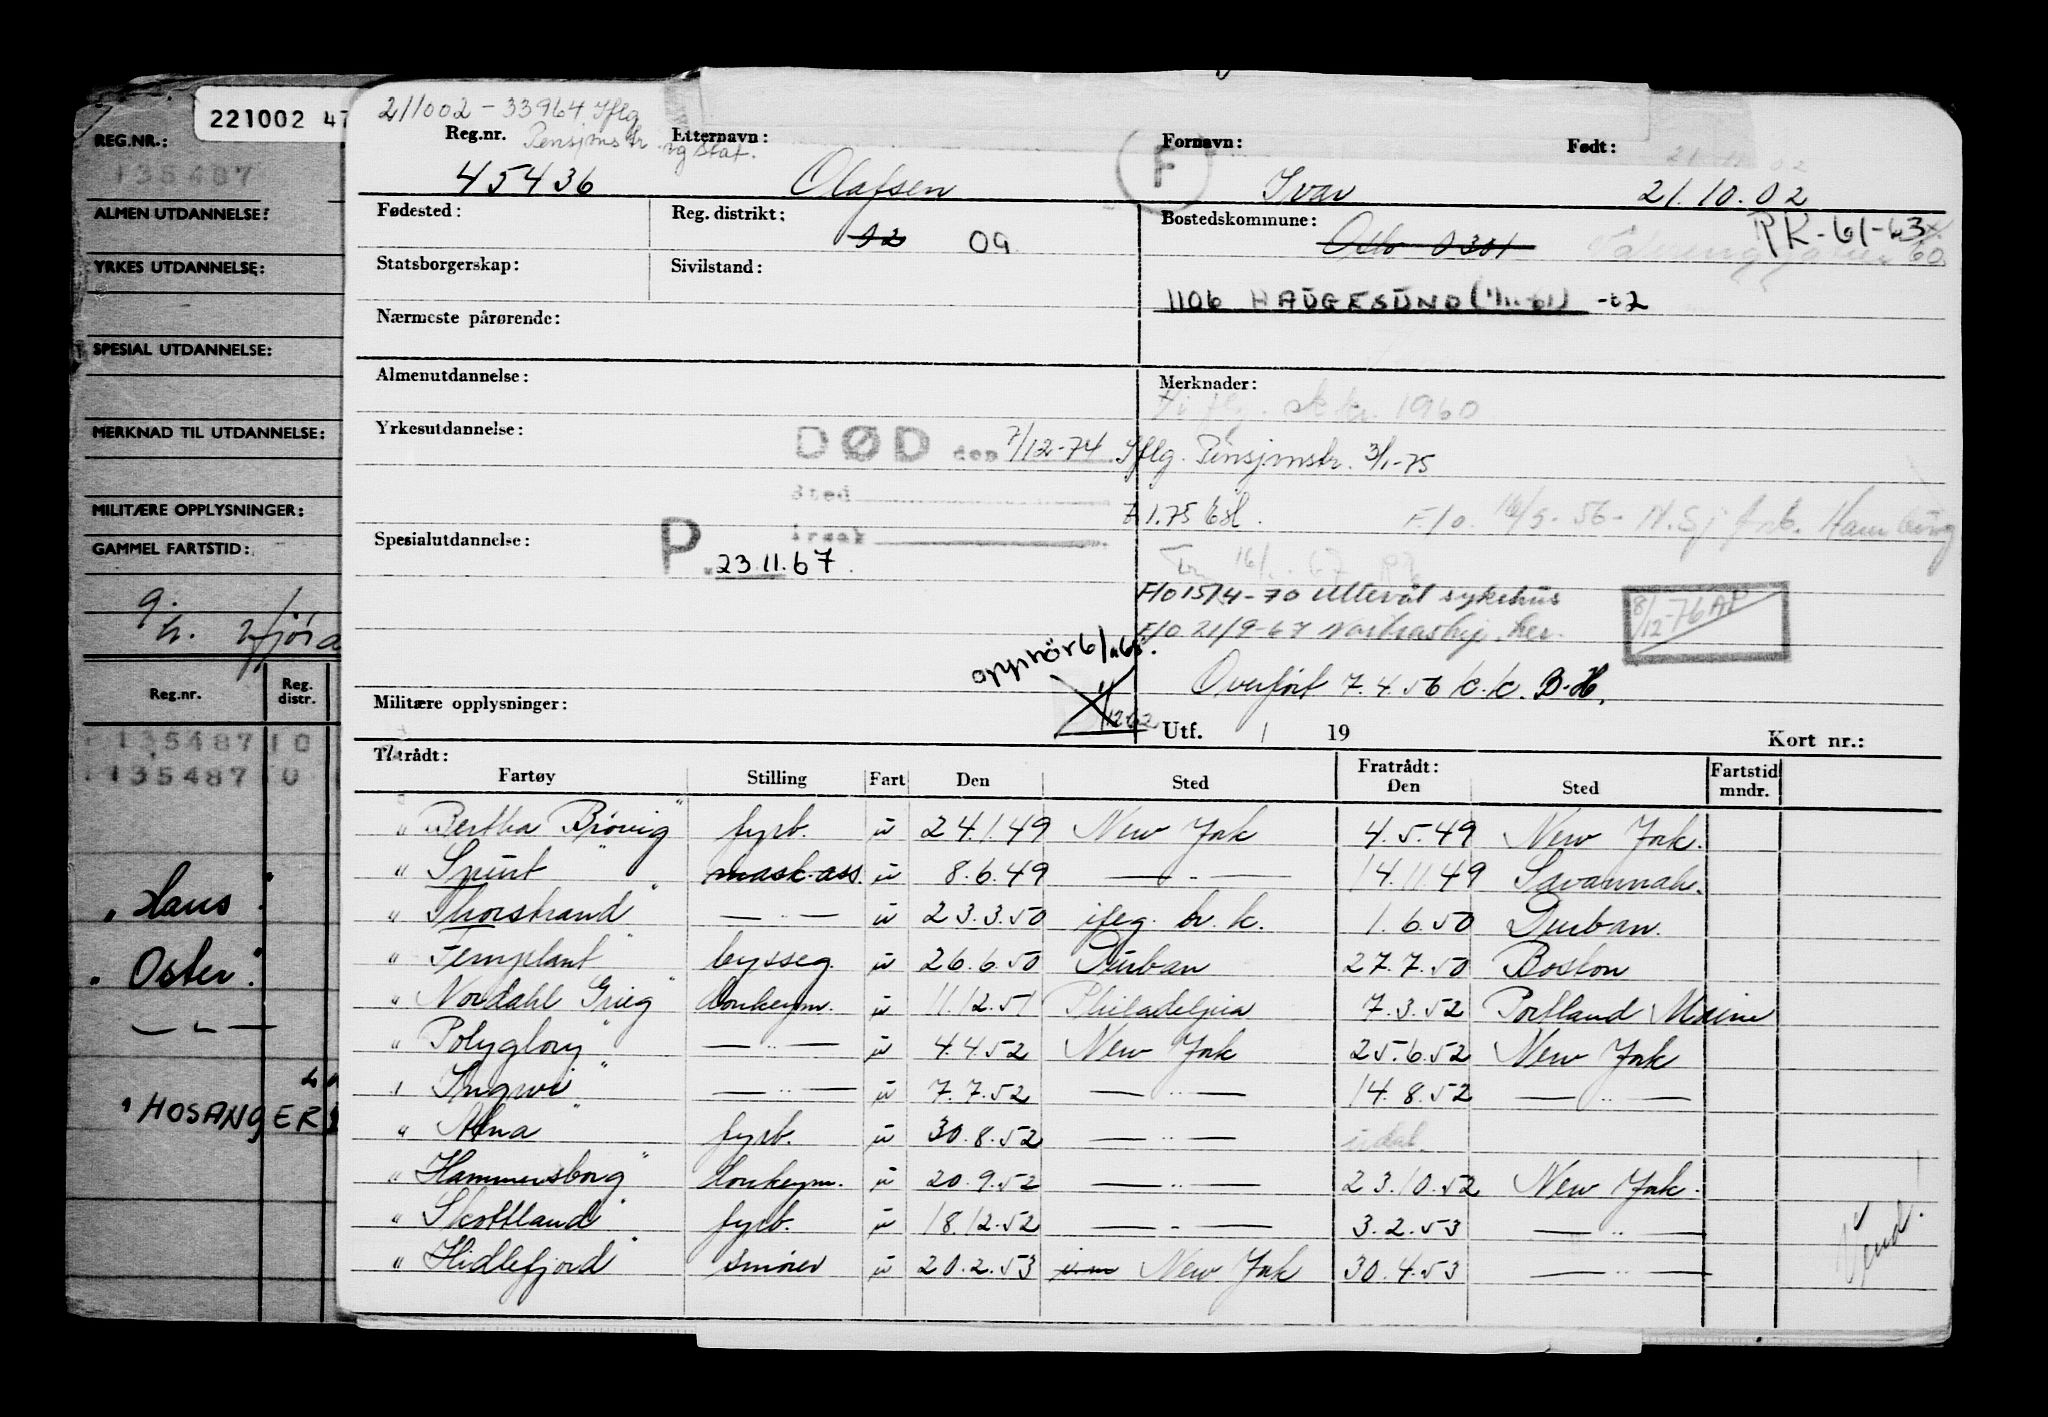 221002 47
REG.NR.:
135487
ALMEN UTDANNELSE:
YRKES UTDANNELSE:
SPESIAL UTDANNELSE:
MERKNAD TIL UTDANNELSE:
MILITÆRE OPPLYSNINGER:
GAMMEL FARTSTID:
Reg.nr. Reg. distr.
135487 10
135487 10
" Haus "
" Oster "
" HOSANGER
211002-33964 Iflg
Pensjonstr. og Stat.
Reg.nr. Etternavn: Fornavn: Født:
45436 Olafsen F Ivar 21.10.02
Fødested: Reg. distrikt: Bostedskommune: RK-61-63
12 09 Oslo 0301
Statsborgerskap: Sivilstand:
1106 HAUGESUND
Nærmeste pårørende:
Almenutdannelse: Merknader:
1960
Yrkesutdannelse:
DØD den 7/12-74 Iflg. Pensjonstr. 3/1-75
Sted
Årsak
F/o. 16/5-56- N.Sj. Hamburg
Spesialutdannelse: P. 23.11.67.
F/O 15/4-70 Ullevål sykehus
8/12-76 AP
F/O 21/9-67 Nortraship
opphør
Overført 7.4.56 k.k. B-H.
Militære opplysninger: Utf. 19 Kort nr.:
Tiltrådt: Fratrådt:
Fartøy Stilling Fart Den Sted Den Sted Fartstid mndr.
" Bertha Brøvig " fyrb. u 24.1.49 New York 4.5.49 New York.
" Spint " mask-ass. u 8.6.49 — " — 14.11.49 Savannah.
" Thorstrand " — " — u 23.3.50 ifлg. br. k. 1.6.50 Durban.
" Fernplant " bysseg. u 26.6.50 Durban 27.7.50 Boston
" Nordahl Grieg " donkeym. u 11.12.51 Philadelphia 7.3.52 Portland Maine
" Polyglory " — " — u 4.4.52 New York 25.6.52 New York
" Ingwi " — " — u 7.7.52 — " — 14.8.52 — " —
" Alna " fyrb. u 30.8.52 — " —
" Hammersborg " donkeym. u 20.9.52 — " — 23.10.52 New York.
" Skottland " fyrb. u 18.12.52 — " — 3.2.53 — " —
" Hidlefjord " smører u 20.2.53 New York 30.4.53 — " —
Vend.